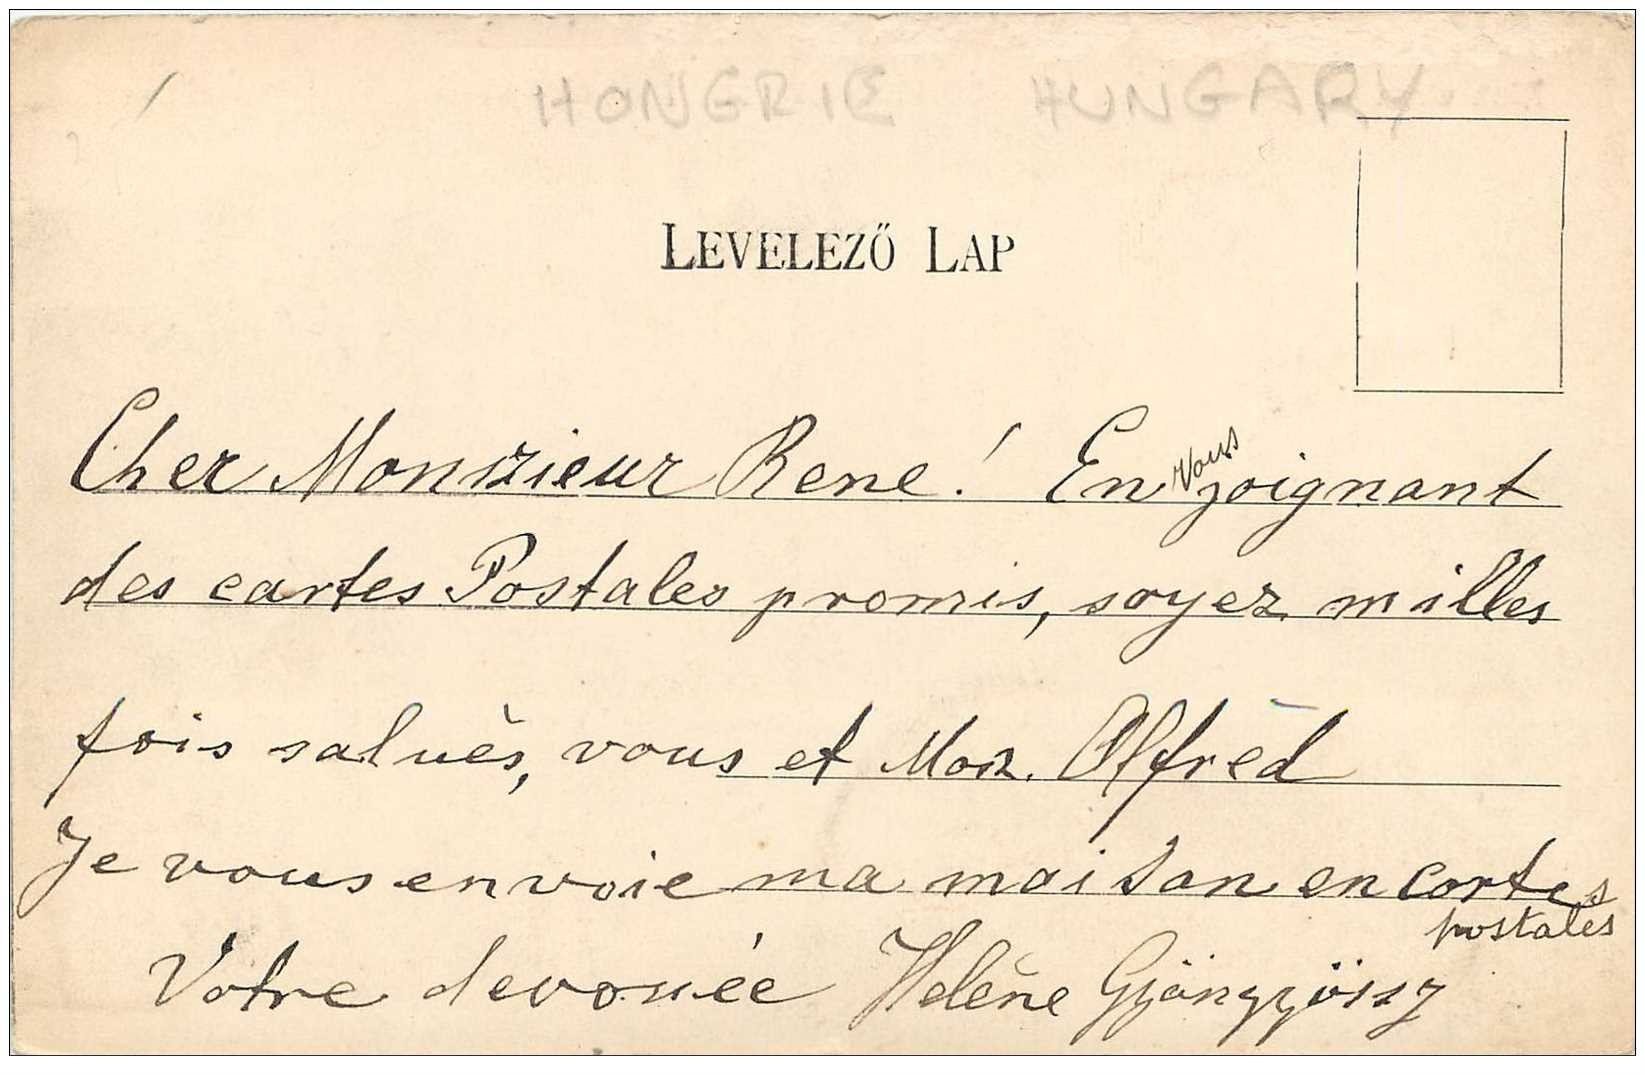 HONGRIE HUNGARY
LEVELEZŐ LAP
Cher Monsieur Rene! En vous joignant
des cartes Postales promis, soyez milles
fois saluès, vous et Mos. Alfrèd
Je vous envoie ma maison en cartes
postales
Votre devouée Helène Gyöngyössy